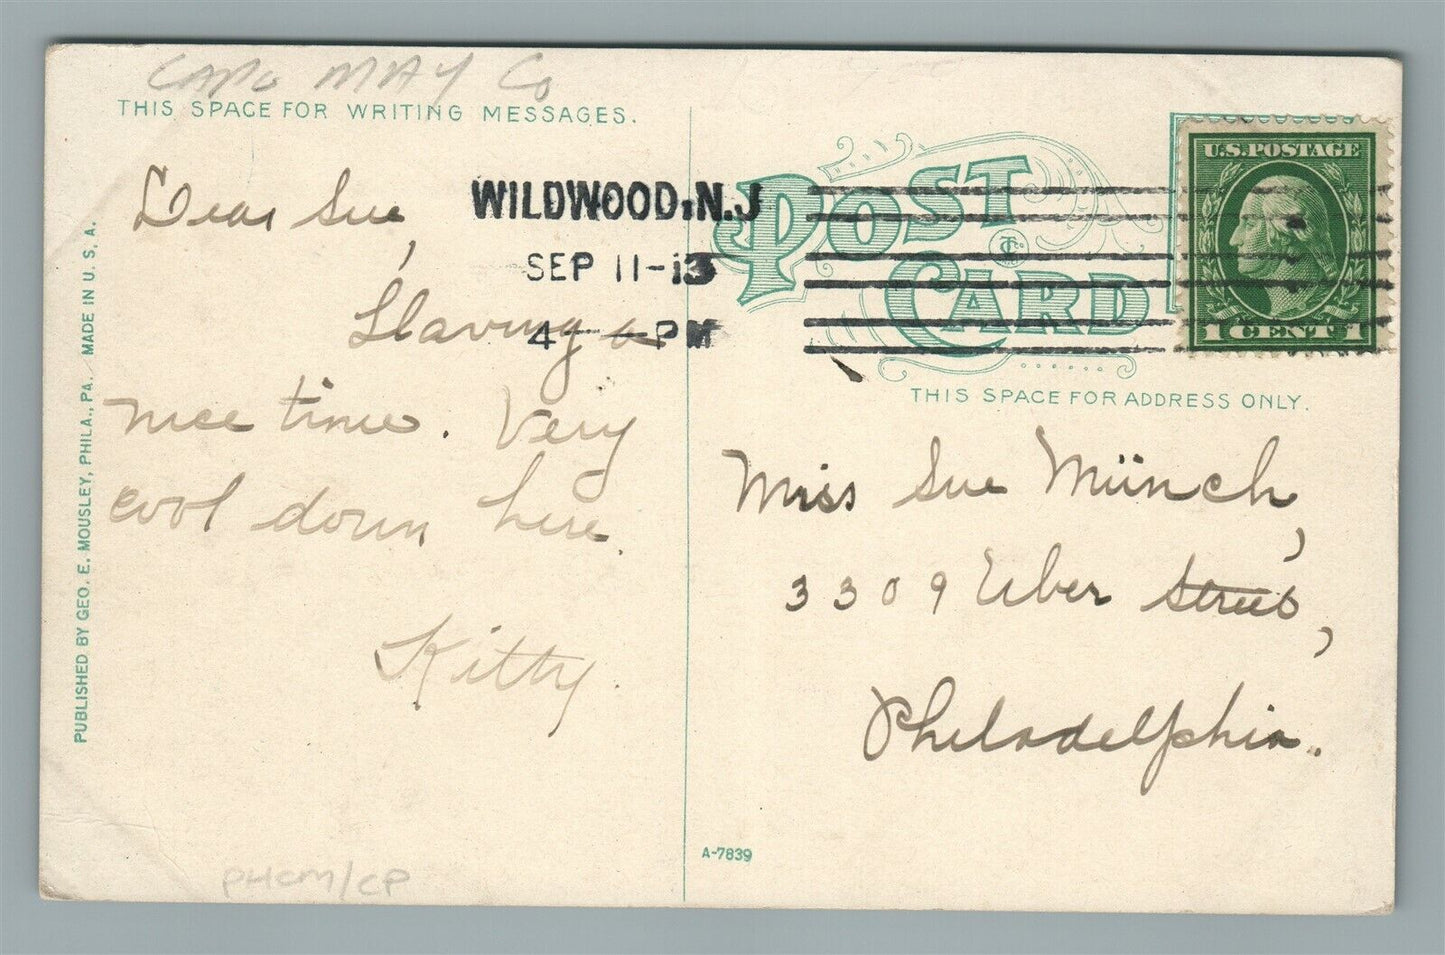 CAPE MAY Co
THIS SPACE FOR WRITING MESSAGES.
Dear Sue,
Having a
nice time. Very
cool down here.
Kitty.
PUBLISHED BY GEO. E. MOUSLEY, PHILA., PA. MADE IN U. S. A.
P4CM/CP
WILDWOOD, N.J
SEP 11-13
4- PM
POST CARD
U.S. POSTAGE
1 CENT 1
THIS SPACE FOR ADDRESS ONLY.
Miss Sue Münch,
3309 Uber Street,
Philadelphia.
A-7839